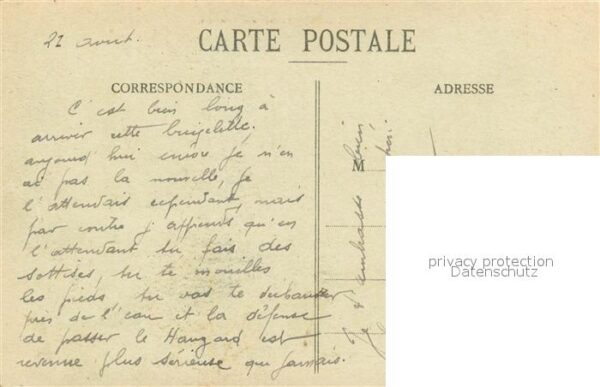 21 août.
CARTE POSTALE
CORRESPONDANCE
ADRESSE
C'est bien long à
arriver cette
aujourd'hui encore je n'en
ai pas la nouvelle, je
l'attendais cependant, mais
par contre j'apprends qu'en
l'attendant tu fais des
sottises, tu te mouilles
les pieds tu vas te
près de l'eau et la défense
de passer le Hangard est
revenue plus sérieuse que jamais.
Je t'embrasse bien
M
privacy protection
Datenschutz